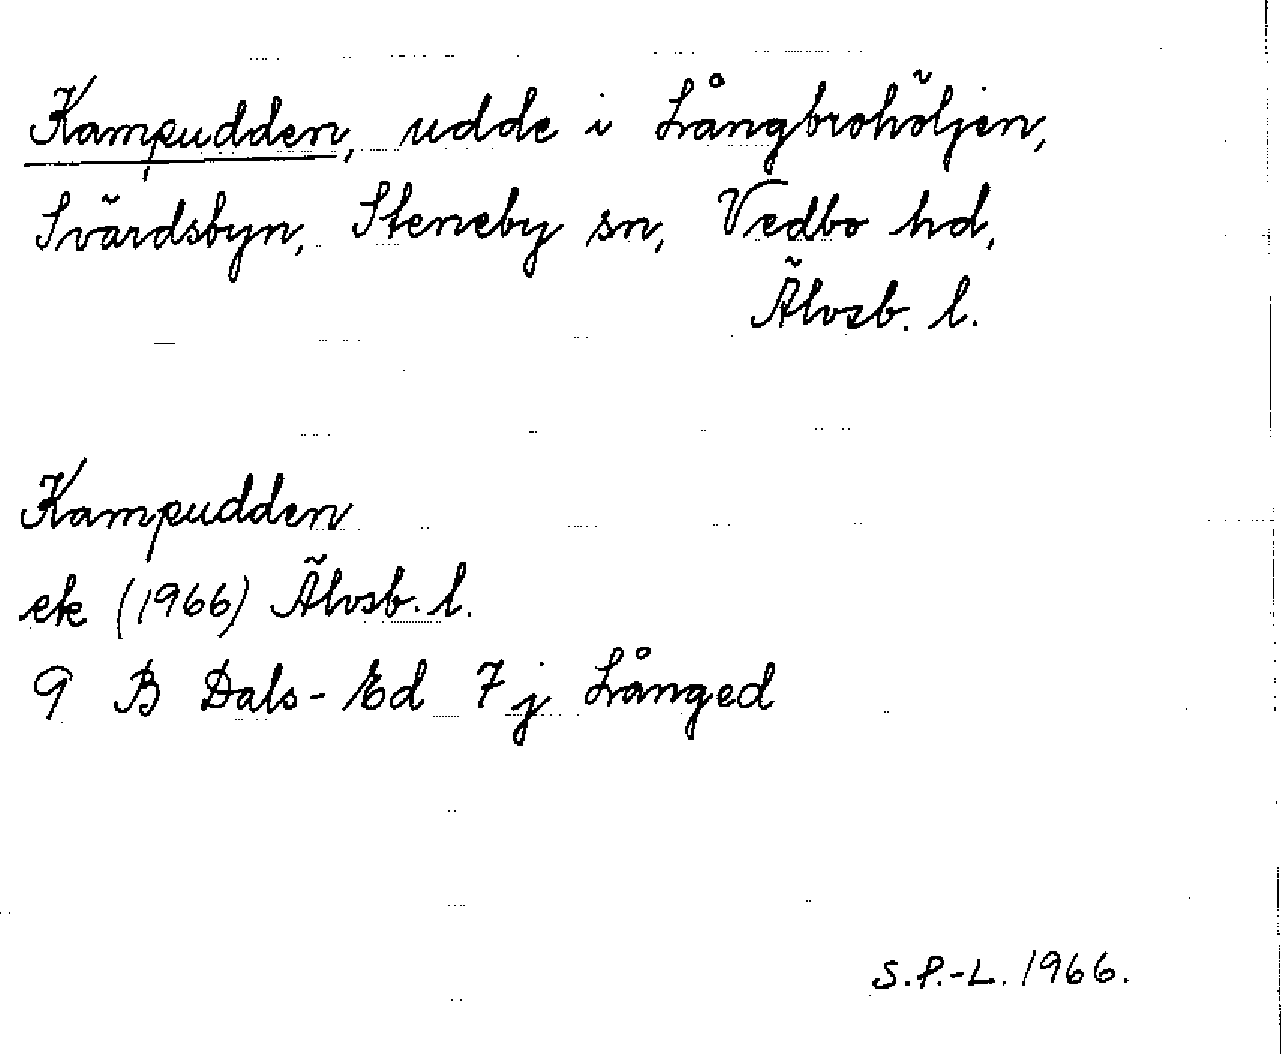 Kampudden, udde i Långbrohöljen,
Svärdsbyn, Steneby sn, Vedbo hd,
Älvsb. l.
Kampudden
ek (1966) Älvsb. l.
9 B Dals-Ed 7j Långed
S.P.-L. 1966.